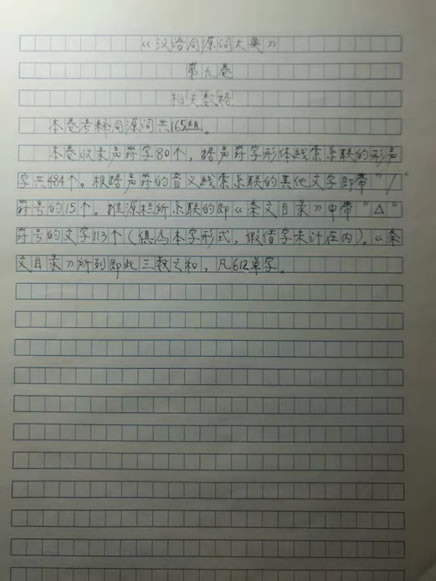 《汉语同源词大典》
第九卷
相关数据
本卷考释同源词共165组。
本卷收录声符字80个，据声符字形体线索系联的形声
字共484个。根据声符的音义线索系联的其他文字即带"/"
符号的15个。推源栏所系联的即《条文目录》中带"△"
符号的文字113个（俱为本字形式，假借字未计在内）。《条
文目录》所列即此三数之和，凡612单字。